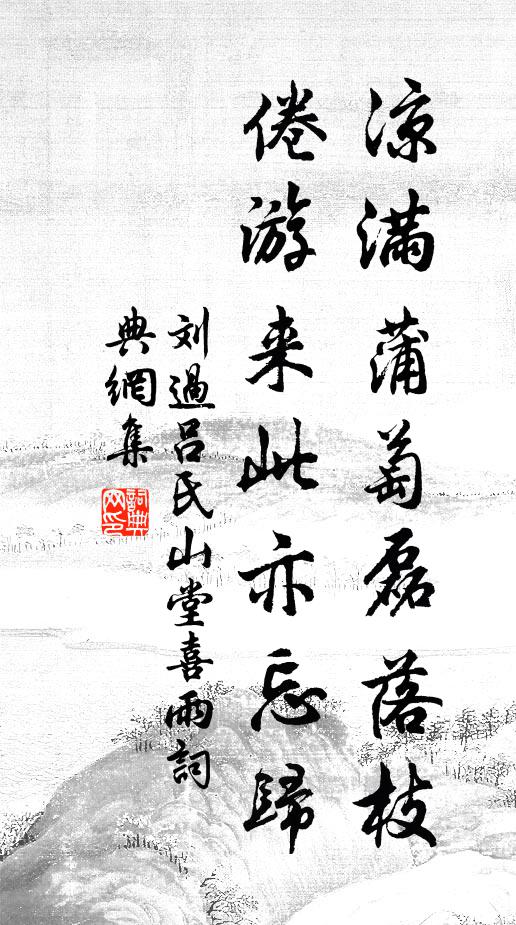 凉满蒲萄磊落枝
倦游来此亦忘歸
刘過吕氏山堂喜雨詞
典網集
詞典
网印